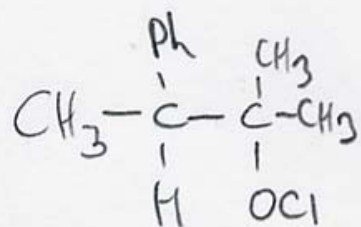 Ph CH3
CH3 - C - C - CH3
H OCl